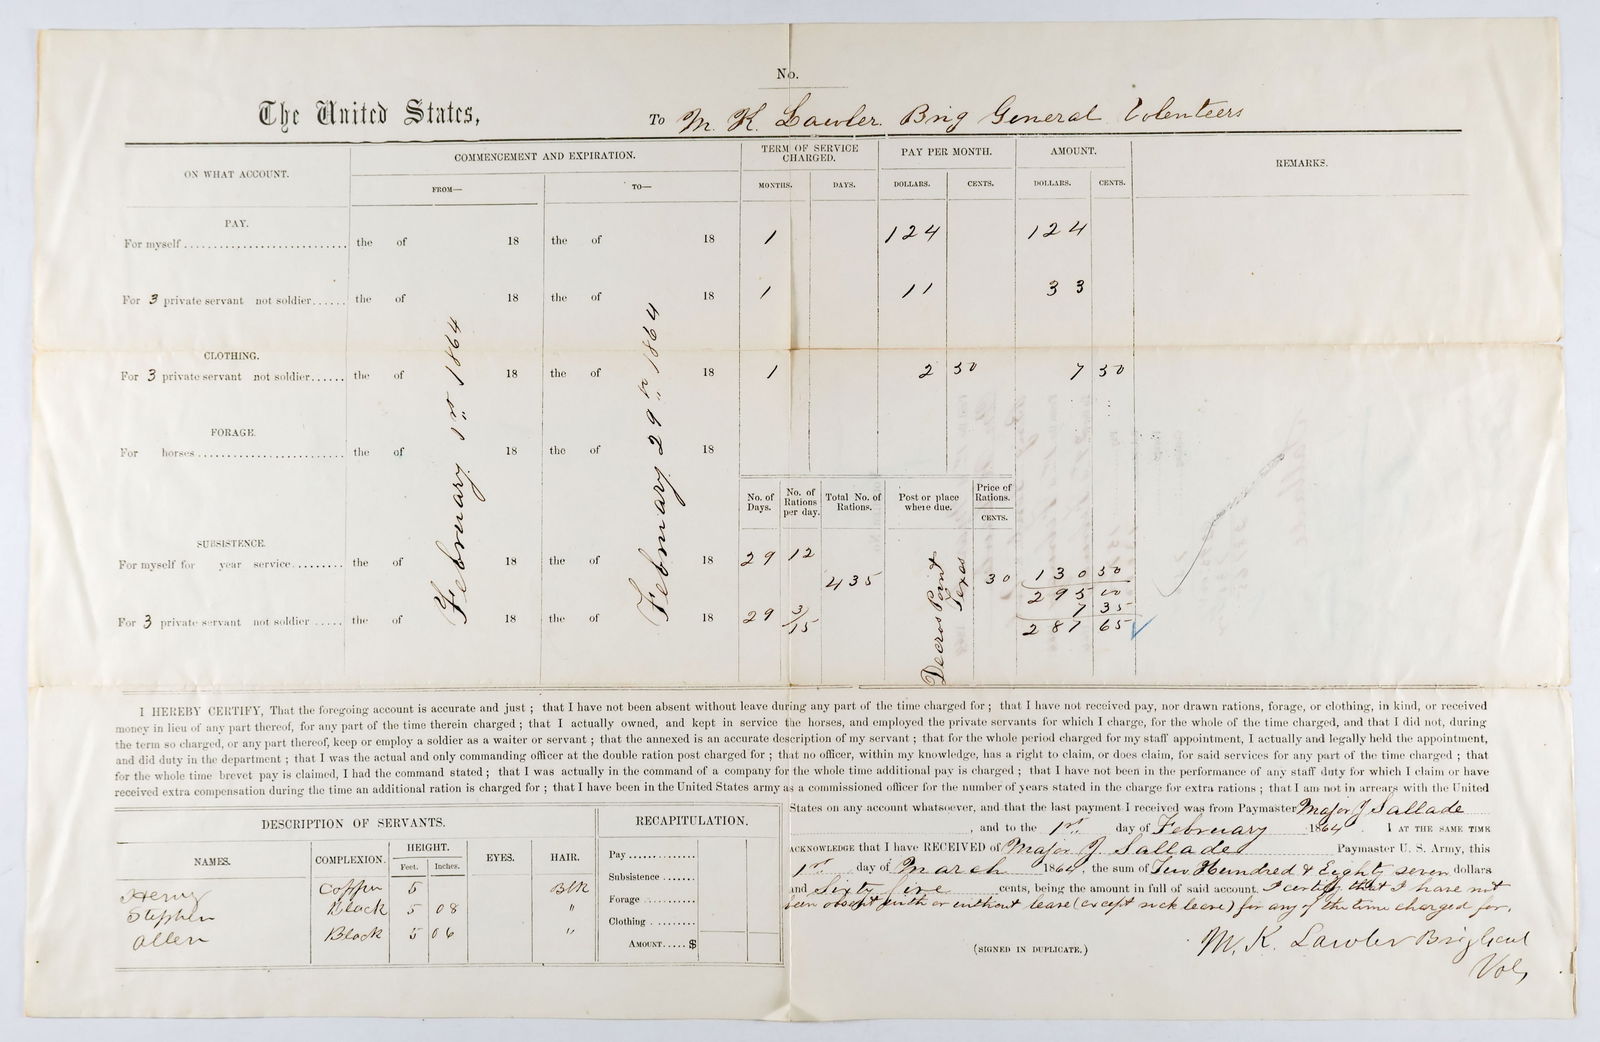 No.
The United States, To M. K. Lawler. Brig General Volenteers
ON WHAT ACCOUNT. COMMENCEMENT AND EXPIRATION. TERM OF SERVICE CHARGED. PAY PER MONTH. AMOUNT. REMARKS.
FROM— TO— MONTHS. DAYS. DOLLARS. CENTS. DOLLARS. CENTS.
PAY.
For myself the of 18 the of 18 1 124 124
For 3 private servant not soldier the of 18 the of 18 1 11 33
CLOTHING.
For 3 private servant not soldier the of 18 the of 18 1 2 50 7 50
FORAGE.
For horses the of 18 the of 18
February 1st 1864
February 29th 1864
No. of Days. No. of Rations per day. Total No. of Rations. Post or place where due. Price of Rations.
CENTS.
SUBSISTENCE.
For myself for year service the of 18 the of 18 29 12 130 50
435 Decros Point Texas 30 295 00
7 35
For 3 private servant not soldier the of 18 the of 18 29 3/15 287 65
I HEREBY CERTIFY, That the foregoing account is accurate and just ; that I have not been absent without leave during any part of the time charged for ; that I have not received pay, nor drawn rations, forage, or clothing, in kind, or received
money in lieu of any part thereof, for any part of the time therein charged ; that I actually owned, and kept in service the horses, and employed the private servants for which I charge, for the whole of the time charged, and that I did not, during
the term so charged, or any part thereof, keep or employ a soldier as a waiter or servant ; that the annexed is an accurate description of my servant ; that for the whole period charged for my staff appointment, I actually and legally held the appointment,
and did duty in the department ; that I was the actual and only commanding officer at the double ration post charged for ; that no officer, within my knowledge, has a right to claim, or does claim, for said services for any part of the time charged ; that
for the whole time brevet pay is claimed, I had the command stated ; that I was actually in the command of a company for the whole time additional pay is charged ; that I have not been in the performance of any staff duty for which I claim or have
received extra compensation during the time an additional ration is charged for ; that I have been in the United States army as a commissioned officer for the number of years stated in the charge for extra rations ; that I am not in arrears with the United
States on any account whatsoever, and that the last payment I received was from Paymaster Major J Sallade
, and to the 1st day of February 1864. I AT THE SAME TIME
ACKNOWLEDGE that I have RECEIVED of Major J Sallade Paymaster U. S. Army, this
1st day of March 1864, the sum of Two Hundred & Eighty seven dollars
and Sixty five cents, being the amount in full of said account. I certify that I have not
been absent with or without leave (except sick leave) for any of the time charged for.
(SIGNED IN DUPLICATE.) M. K. Lawler Brig Genl
Vols
DESCRIPTION OF SERVANTS.
NAMES. COMPLEXION. HEIGHT. EYES. HAIR.
Feet. Inches.
Henry Copper 5 Blk
Stephen Black 5 08 "
Allen Black 5 06 "
RECAPITULATION.
Pay
Subsistence
Forage
Clothing
AMOUNT $